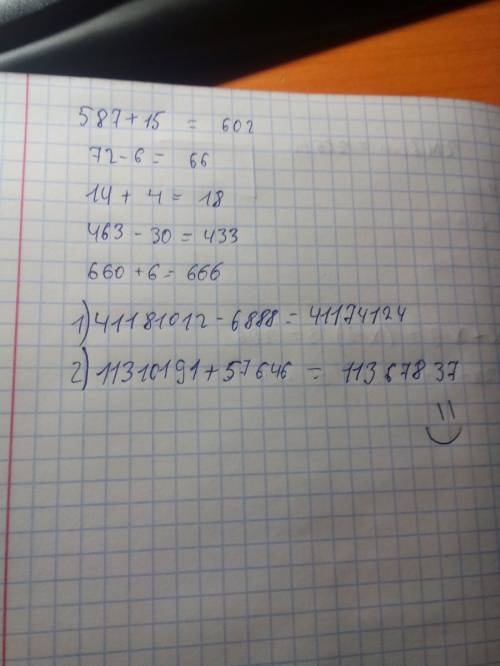 587+15 = 602
72-6= 66
14+ 4= 18
463 - 30 = 433
660 +6= 666
1) 41181012 - 6888 = 41174124
2) 11310191+57646 = 11367837